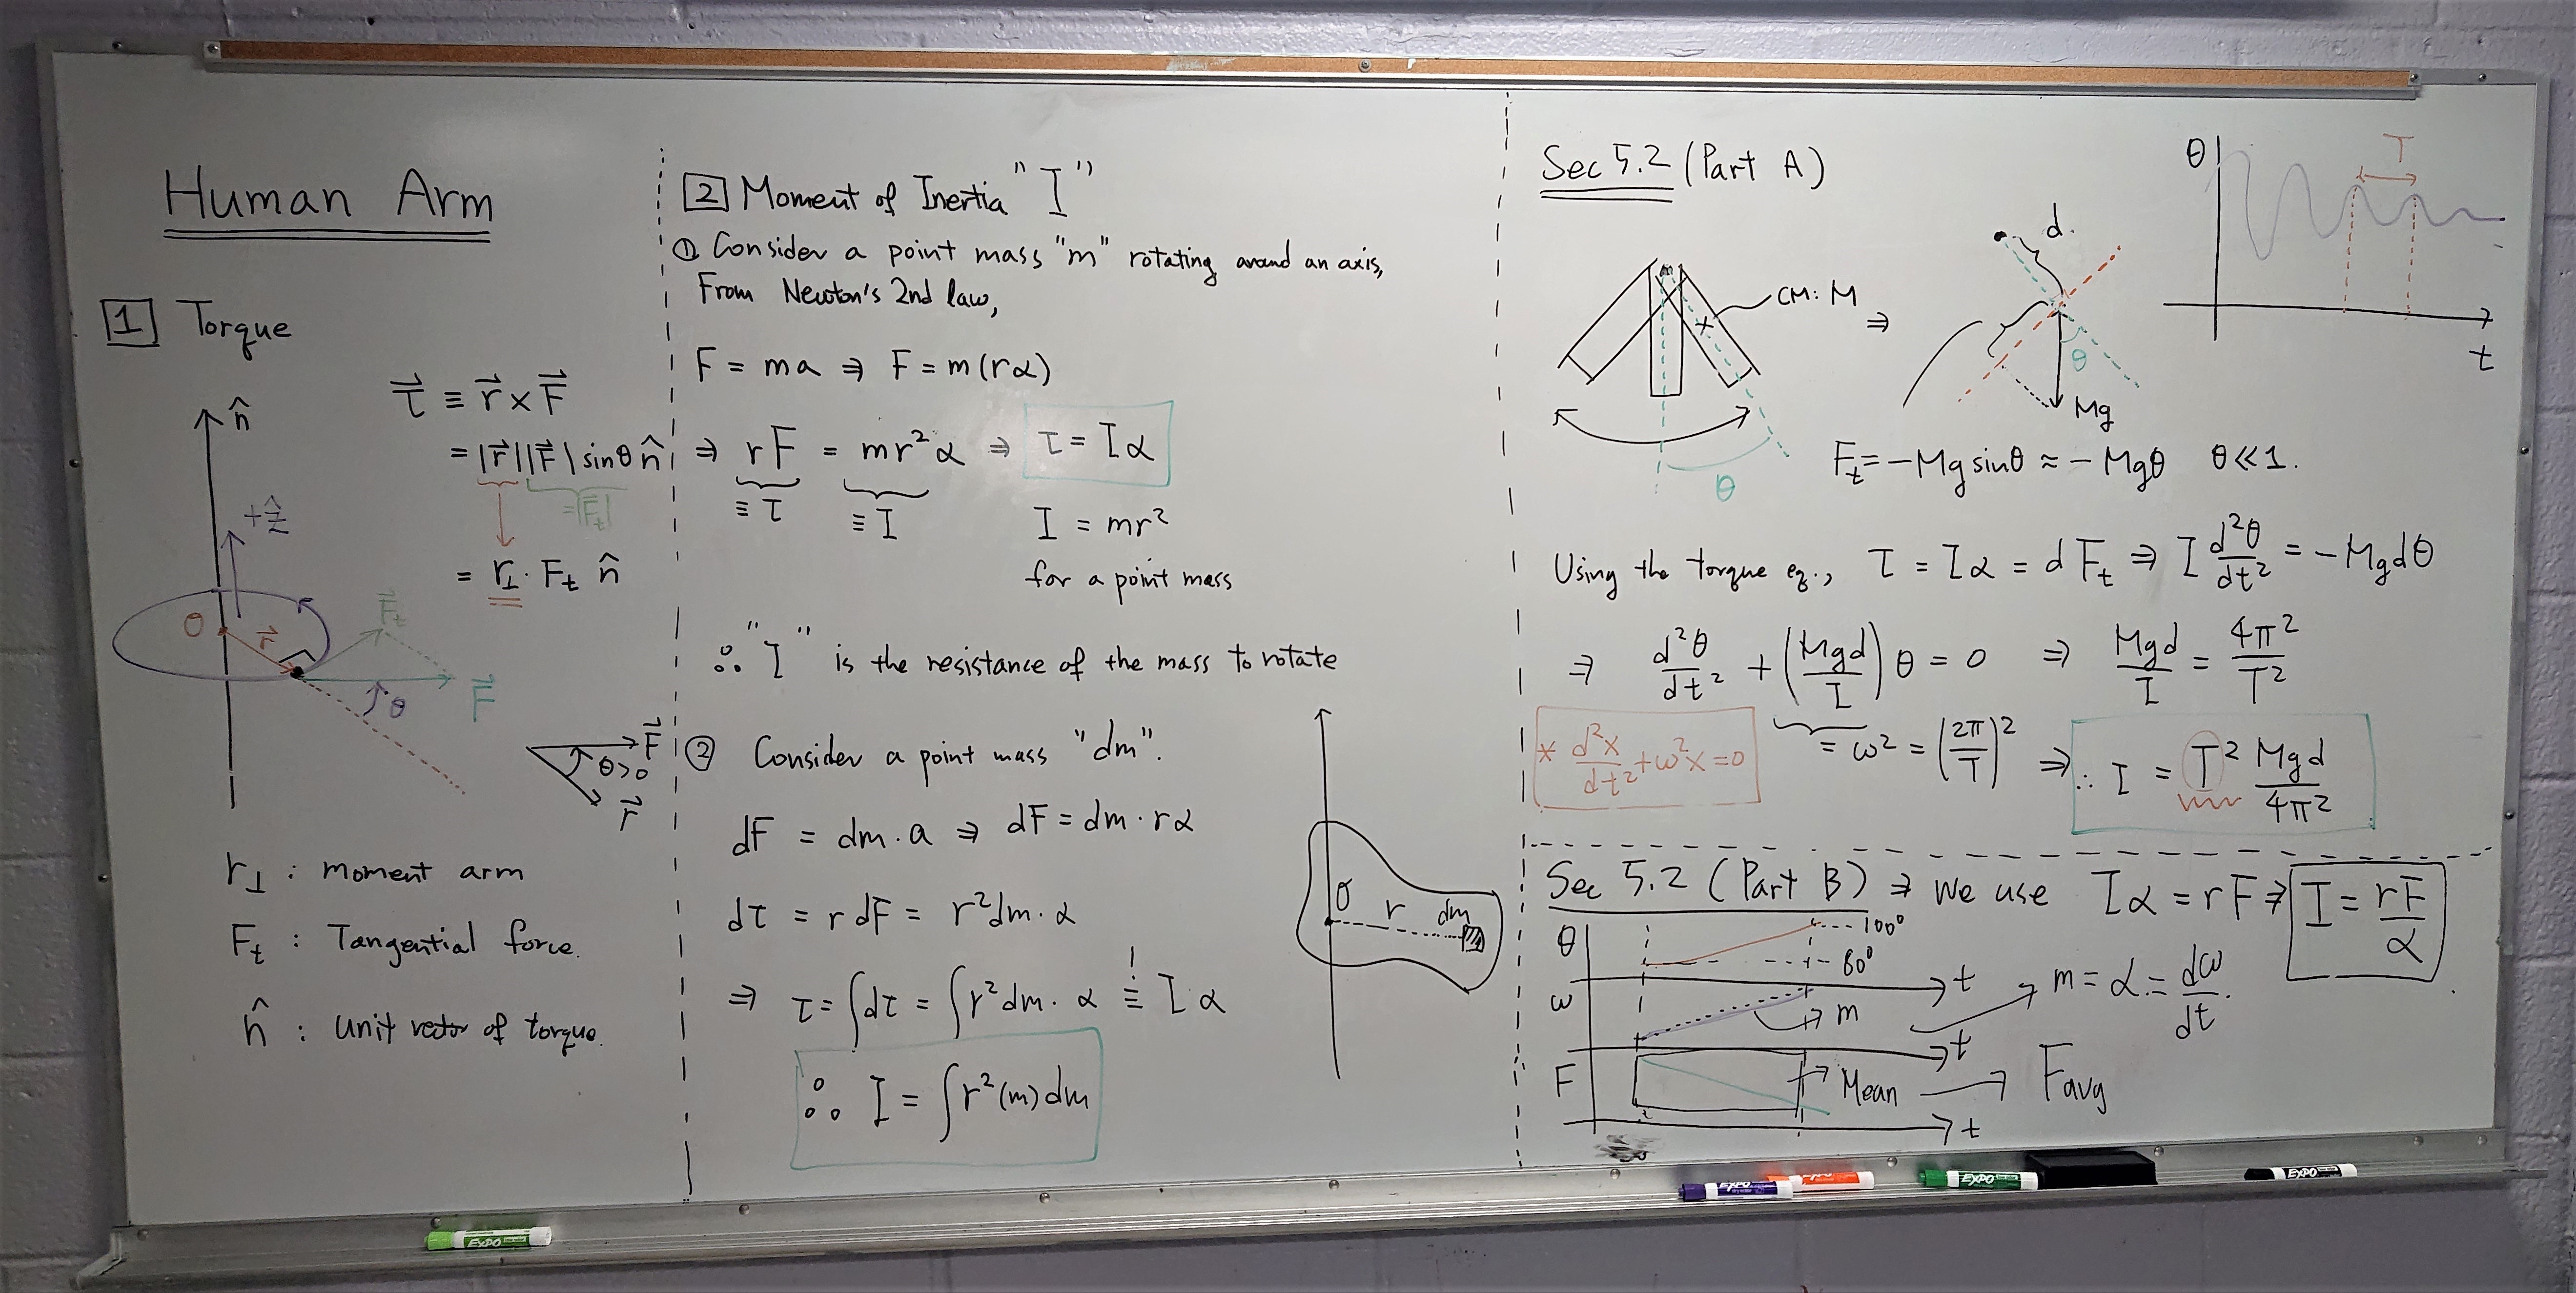 Human Arm
1 Torque
n̂
τ⃗ ≡ r⃗ × F⃗
= |r⃗||F⃗| sinθ n̂
= |F⃗t|
= r⊥ · Ft n̂
+ẑ
O
r⃗
F⃗t
F⃗
θ
F⃗
θ>0
r⃗
r⊥ : moment arm
Ft : Tangential force.
n̂ : unit vector of torque.
2 Moment of Inertia "I"
① Consider a point mass "m" rotating around an axis,
From Newton's 2nd law,
F = ma ⇒ F = m(rα)
⇒ rF = mr²α ⇒ τ = Iα
≡ τ ≡ I
I = mr²
for a point mass
∴ "I" is the resistance of the mass to rotate
② Consider a point mass "dm".
dF = dm · a ⇒ dF = dm · rα
dτ = r dF = r²dm · α
⇒ τ = ∫dτ = ∫r²dm · α ≡ I α
∴ I = ∫r²(m)dm
O r dm
Sec 5.2 (Part A)
CM: M
⇒
θ
d
θ
Mg
θ
T
t
Ft = -Mg sinθ ≈ - Mgθ θ ≪ 1.
Using the torque eq., τ = Iα = d Ft ⇒ I d²θ/dt² = -Mgdθ
⇒ d²θ/dt² + (Mgd/I) θ = 0 ⇒ Mgd/I = 4π²/T²
* d²x/dt² + ω²x = 0
= ω² = (2π/T)² ⇒ ∴ I = T² Mgd/4π²
Sec 5.2 (Part B) ⇒ We use Iα = rF ⇒ I = rF/α
θ
100°
80°
t
ω
m
t
m = α = dω/dt.
F
Mean → Favg
t
EXPO
EXPO
EXPO
EXPO
EXPO